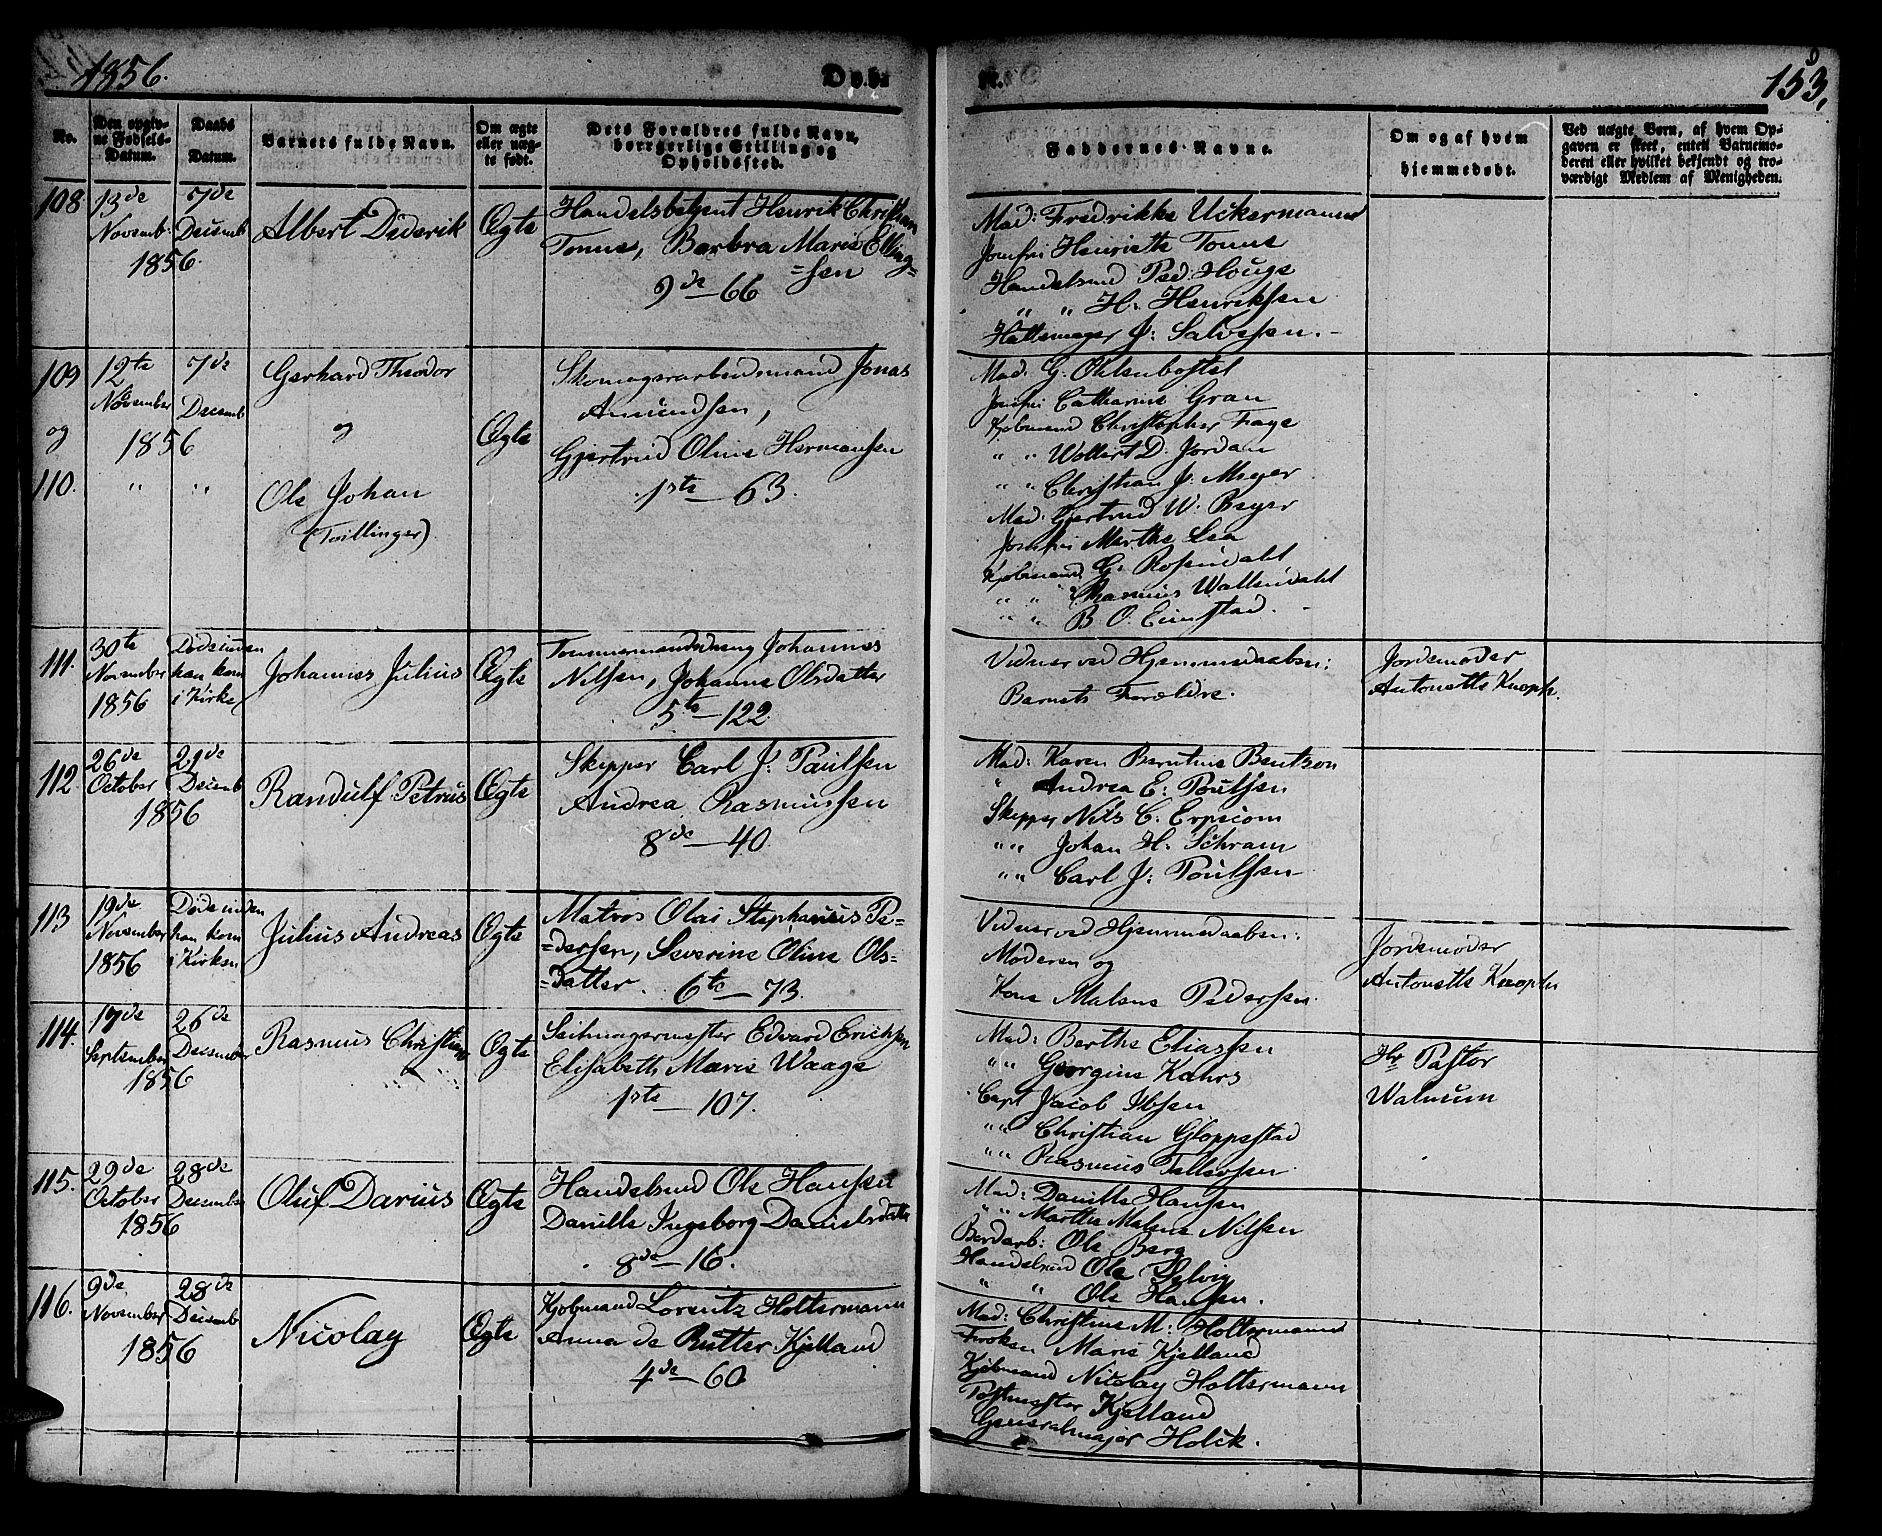 1856.
Døbte.
153,
No.
Den opgiv-
ne Fødsels-
Datum.
Daabs
Datum.
Barnets fulde Navn.
Om ægte
eller uæg-
te født.
Dets Forældres fulde Navn,
borgerlige Stilling og
Opholdssted.
Faddernes Navne.
Om og af hvem
hjemmedøbt.
Ved uægte Børn, af hvem Op-
gaven er skeet, enten Barnemo-
deren eller hvilket bekjendt og tro-
værdigt Medlem af Menigheden.
108
13de
Novemb.
1856.
7de
Decemb
Albert Diderik
Ægte
Handelsbetjent Henrik Christian
Tonns, Barbra Marie Elling=
=sen
9de - 66
Mad: Fredrikke Uckermann
Jomfru Henriette Tonns
Handelsmd Ped: Houge
" " H. Henriksen
Hattemager J. Salvesen.
109
og
110.
12te
November
1856
" "
7de
Decemb
" "
Gerhard Theodor
og
Ole Johan
(Tvillinger)
Ægte
Skomagerarbeidsmand Jonas
Amundsen,
Gjertrud Oline Hermansen
1ste - 63.
Mad: G. Ohlenbostel
Jomfru Catharine Gran
Kjøbmand Christopher Faye
" " Wollert D. Jordan
" " Christian J. Meyer
Mad: Gjertrud W. Beyer
Jomfru Marthe Lea
Kjøbmand G. Rosendahl
" " Wallendahl
" " B. O. Eimstad.
111.
30te
November
1856
Døde inden
han kom
i Kirke
Johannes Julius
Ægte
Tømmermandsdreng Johannes
Nilsen, Johanne Olsdatter
5te - 122
Vidner ved Hjemmedaaben:
Barnets Forældre.
Jordemoder
Antonette Knoph.
112
26de
October
1856
21de
Decemb
Randulf Petrus
Ægte
Skipper Carl J: Paulsen
Andrea Rasmussen
8de - 40.
Mad: Karen Berntine Bentzon
" Andrea E. Poulsen
Skipper Nils C. Erpecom
" " Johan H. Schram
" " Carl J: Poulsen
113
19de
November
1856
Døde inden
han kom
i Kirken
Julius Andreas
Ægte
Matros Olai Stephanus Pe=
=dersen, Severine Oline Ols=
=datter. 6te - 73.
Vidner ved Hjemmedaaben:
Moderen og
Kone Malene Pedersen.
Jordemoder
Antonette Knoph
114.
September
1856
26de
December
Rasmus Christian
Ægte
Seilmagermester Edvard Ericksen
Elisabeth Marie Waage
1ste - 107.
Mad: Berthe Eliassen
" " Georgine Kahrs
Capt Jacob Ibsen
" " Christian Gloppestad
" " Rasmus Tellefsen
Hr Pastor
Walnum
115.
29de
October
1856
28de
December
Oluf Darius
Ægte
Handelsmd Ole Hansen
Danille Ingeborg Danielsdatter
8de - 16.
Mad: Danille Hansen
" " Marthe Malene Nilsen
Ole Berg
Handelsmd Ole Selvig
" " Ole Hansen.
116.
9de
November
1856
28de
Decemb
Nicolay
Ægte
Kjøbmand Lorentz Holtermann
Anna de Rütter Kjelland
4de - 60
Mad: Christine M: Holtermann
Frøken Marie Kjelland
Kjøbmand Nicolay Holtermann
Postmester Kjelland
Generalmajor Holck.